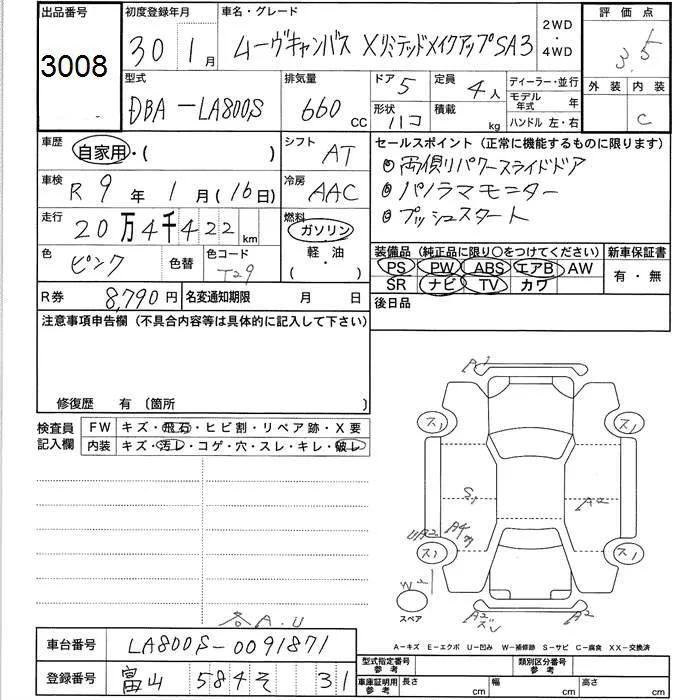 出品番号 3008
初度登録年月 30 1月
車名・グレード ムーヴキャンバス XリミテッドメイクアップSA3
2WD・4WD
評価点 3.5
型式 DBA-LA800S
排気量 660 CC
ドア 5
定員 4人
形状 ハコ
積載 kg
ディーラー・並行
モデル年式 年
ハンドル 左・右
外装 内装 C
車歴 自家用・( )
シフト AT
セールスポイント(正常に機能するものに限ります)
◎両側パワースライドドア
◎パノラマモニター
◎プッシュスタート
車検 R9年1月(16日)
冷房 AAC
走行 20万4千422km
燃料 ガソリン 軽・油 ( )
色 ピンク 色替
色コード T29
装備品(純正品に限り○をつけてください)
PS PW ABS エアB AW
SR ナビ TV カワ
新車保証書 有・無
R券 8,790円
名変通知期限 月 日
後日品
注意事項申告欄(不具合内容等は具体的に記入して下さい)
修復歴 有 〔箇所 〕
検査員記入欄
FW キズ・飛石・ヒビ割・リペア跡・X要
内装 キズ・汚レ・コゲ・穴・スレ・キレ・破レ
A・U
ス1 ス1
S1 A2
A4
ス1 ス1
W
スペア
A2 A2
A-キズ E-エクボ U-凹み W-補修跡 S-サビ C-腐食 XX-交換済
車台番号 LA800S-0091871
登録番号 富山 584 そ 31
型式指定番号 参考
類別区分番号 参考
車庫証明用 参考 長さ cm 幅 cm 高さ cm